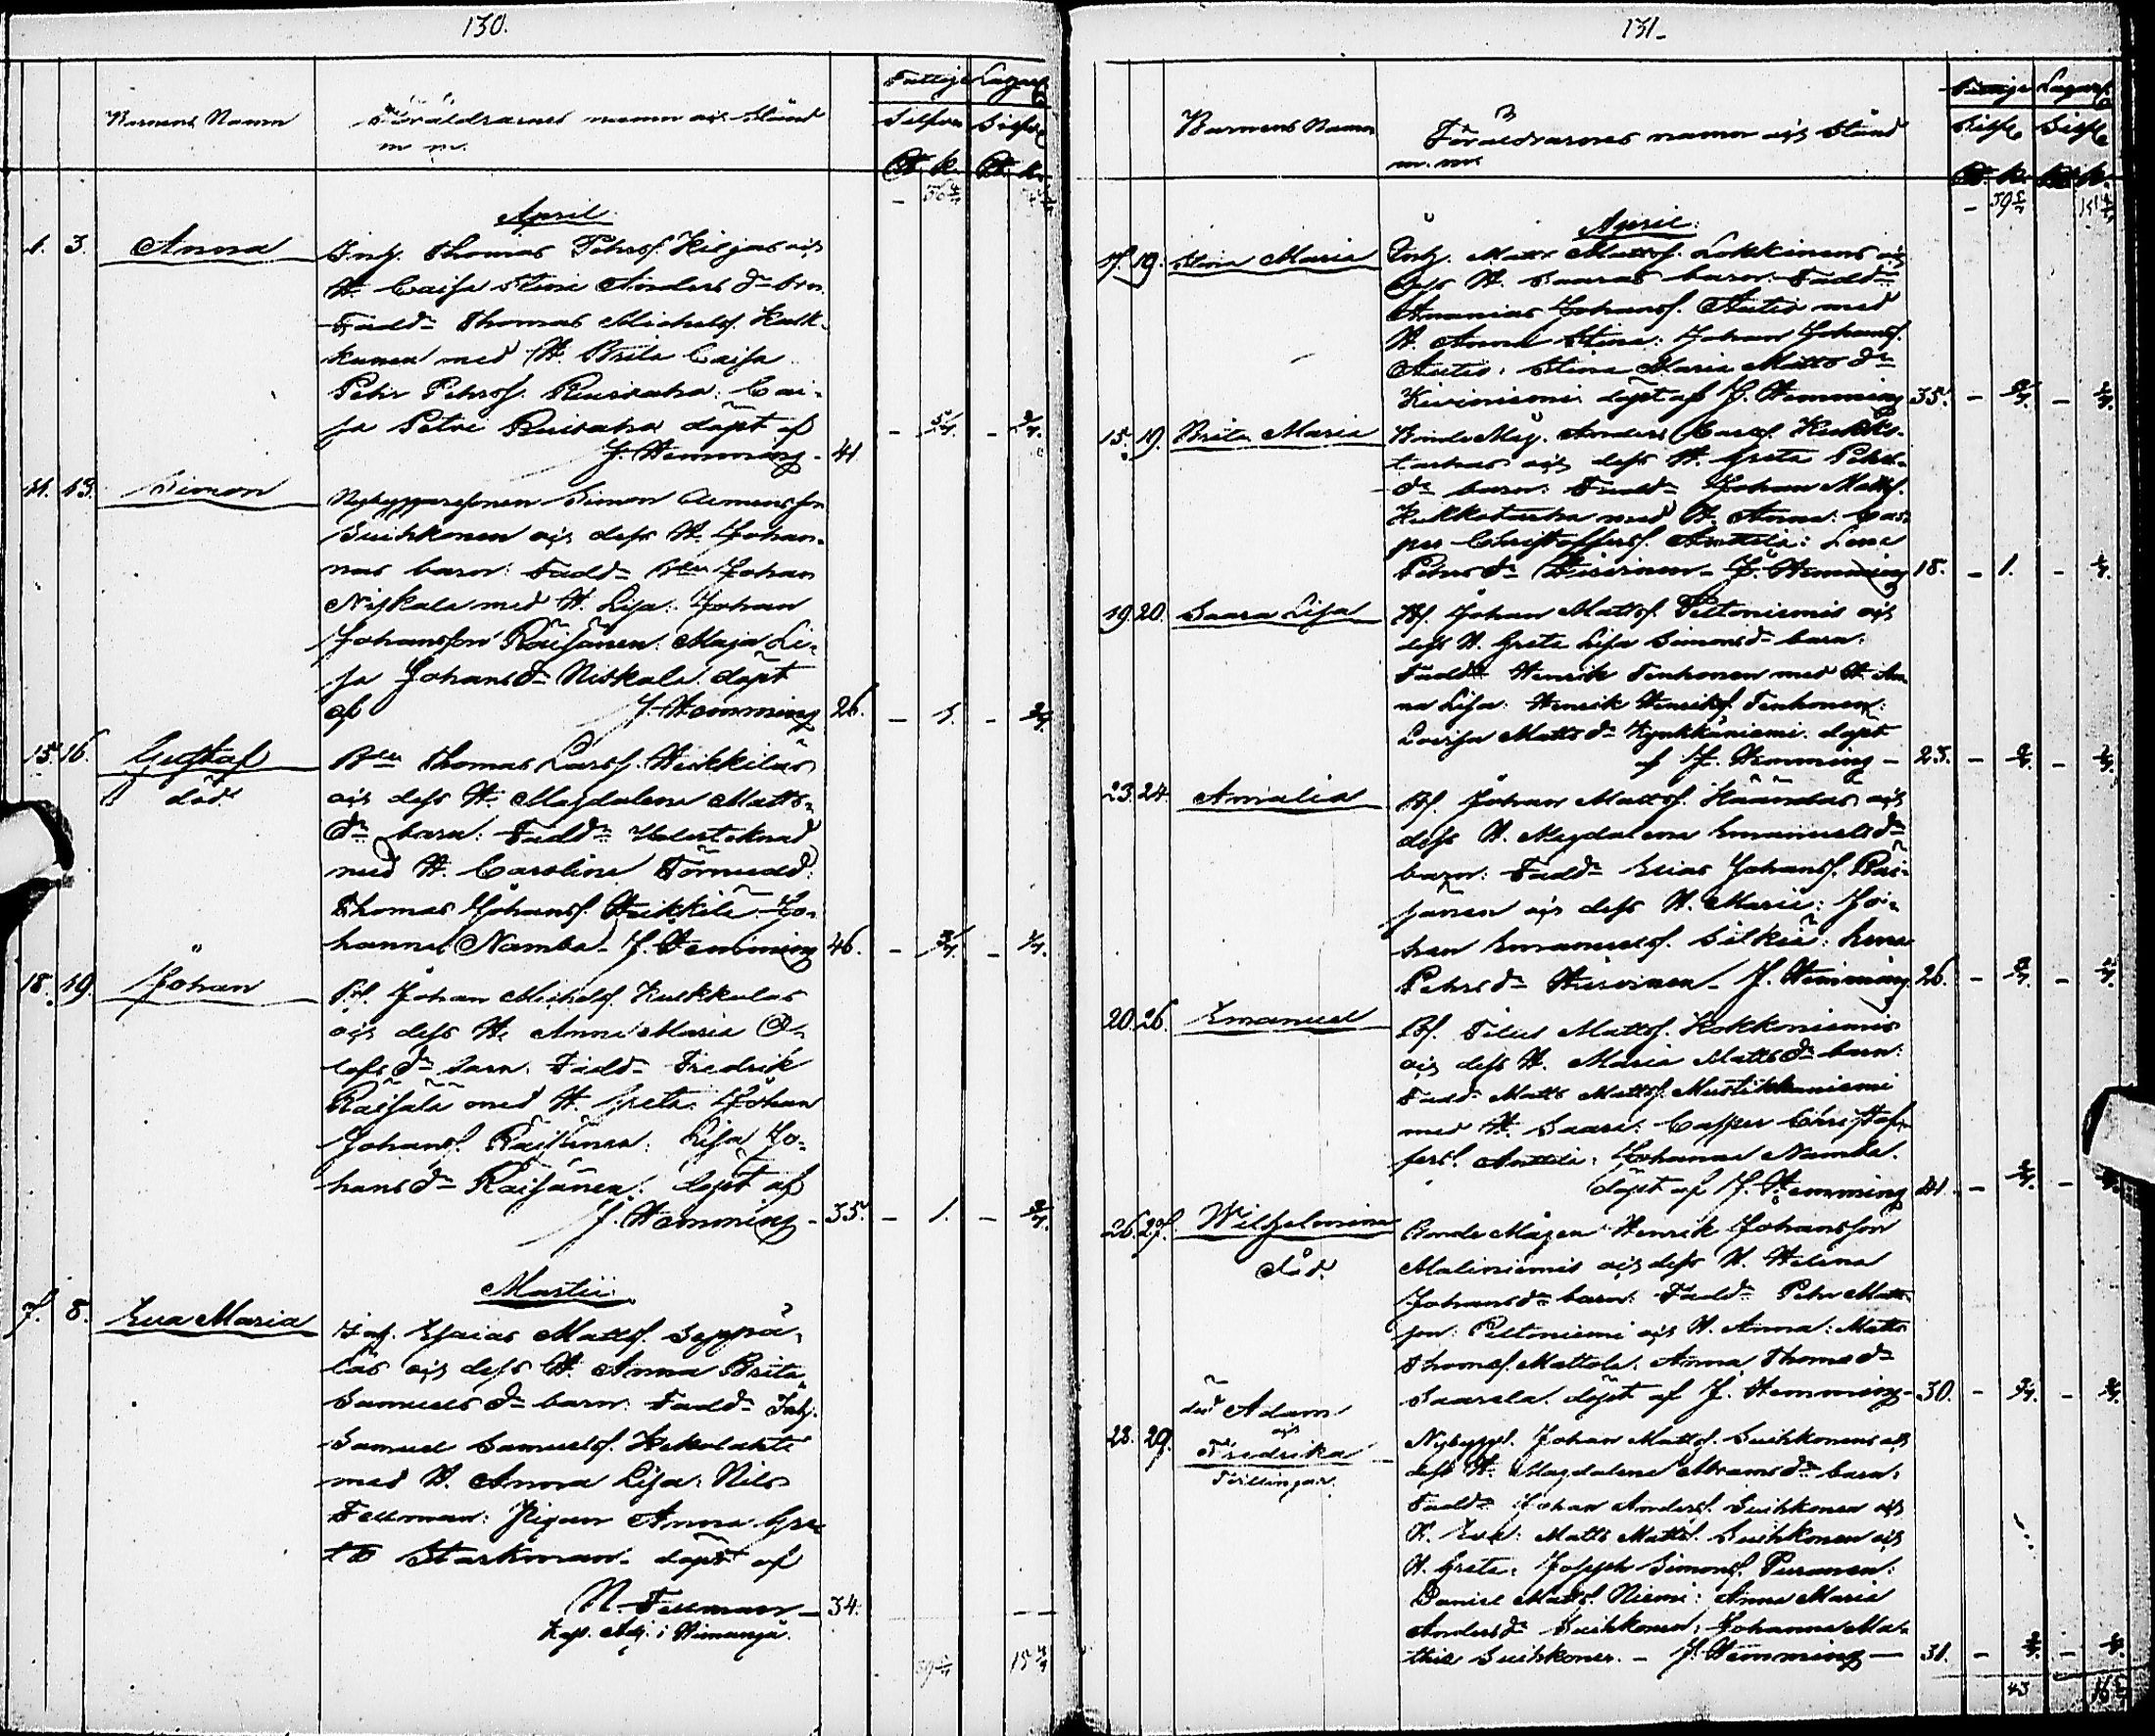 130.
Barnens Namn
Föräldrarnes namn och Stånd
m m.
Fattige Lazar
Silfver Silfver
April
1. 3. Anna
Inh. Thomas Pehrss. Kiljas och
H. Caisa Stina Anders dr brn.
Fadd. Thomas Michelss. Kukk-
kunen med H. Brita Caisa
Pehr Pehrss. Ruisraha: Cai-
sa Petri Ruisraha döpt af
J. Hemming - 41
11. 13. Simon
Nybyggaresonen Simon Clemensson
Suihkonen och dess H. Johan-
nas barn: Fadd. Johan
Niskala med H. Lisa: Johan
Johansson Räisänen: Maja Li-
sa Johans dr Niskala. döpt
af J. Hemming 26. - 1. -
15. 16. Gustaf
död
Thomas Larss. Heikkiläs
och dess H. Magdalena Matts
dr barn: Fadd.
med H. Carolina Törnudd:
Thomas Johanss. Heikkilä. Jo-
hanna Namba - J. Hemming 46.
18. 19. Johan
Johan Michelss. Kukkulas
och dess H. Anna Maria O-
lofs dr barn. Fadd. Fredrik
Räisälä med H. Greta. Johan
Johanss. Räisänen: Lisa Jo-
hans dr Räisänen: döpt af
J. Hemming - 35. - 1. -
Martii
7. 8. Eva Maria
Inh. Esaias Mattss. Seppä-
läs och dess H. Anna Brita
Samuels dr barn: Fadd. Inh.
Samuel Samuelss. Kekolahti
med H. Anna Lisa: Nils
Fellman: Pigan Anna Gre-
ta Starkman. döpt af
N. Fellman - 34.
Kap. Adj. i Himango.
131.
Barnens Namn
Föräldrarnes namn och Stånd
m. m.
April:
17. 19. Stina Maria
Inh. Matts Mattss. Lokkinens och
dess H. Saaras barn. Fadd.
Ananias Johanss. Autio med
H. Anna Stina: Johan Johanss.
Autio: Stina Maria Matts dr
Kiviniemi döpt af J. Hemming 35.
15. 19. Brita Maria
Bonde Måg. Anders Karlss. Kukko-
tarhas och dess H. Greta Pehrs
dr barn: Fadd. Johan Mattss.
Kukkotarha med H. Anna: Cas-
per Christofferss. Anttila: Lena
Pehrs dr - J. Hemming 18. - 1. -
19. 20. Saara Lisa
Johan Mattss. Peltoniemis och
dess H. Greta Lisa Simons dr barn:
Fadd. Henrik Tenhonen med H. An-
na Lisa: Henrik Henrikss. Tenhonen:
Lovisa Matts dr Kynkkäniemi. döpt
af J. Hemming - 23.
23. 24. Amalia
Johan Mattss. Häändas och
dess H. Magdalena Emanuels dr
barn: Fadd. Elias Johanss. Räi-
sänen och dess H. Maria: Jo-
han Emanuelss. Silkiä: Lena
Pehrs dr Hirvinen - J. Hemming 26.
20. 26. Emanuel
Titus Mattss. Kokkoniemis
och dess H. Maria Matts dr barn:
Fadd. Matts Mattss. Mustikkaniemi
med H. Saara: Casper Christof-
ferss. Anttila: Johanna Namba.
döpt af J. Hemming 41.
26. 27. Wilhelmina
död.
Bonde Mågen Henrik Johansson
Maliniemis och dess H. Helena
Johans dr barn: Fadd. Pehr Matts-
son: Peltoniemi och H. Anna: Matts
Thomass. Mattola. Anna Thomas dr
Saarela. döpt af J. Hemming - 30.
28. 29. död Adam
och
Fredrika
Tvillingar.
Nybygg. Johan Mattss. Suihkonens och
dess H. Magdalena Abrams dr barn:
Fadd. Johan Anderss. Suihkonen och
H. Eva: Matts Mattss. Suihkonen och
H. Greta: Joseph Simonss. Puranen:
Daniel Mattss. Niemi: Anna Maria
Anders dr Suihkonen: Johanna Ma-
thil Suihkonen. - J. Hemming - 31.
43